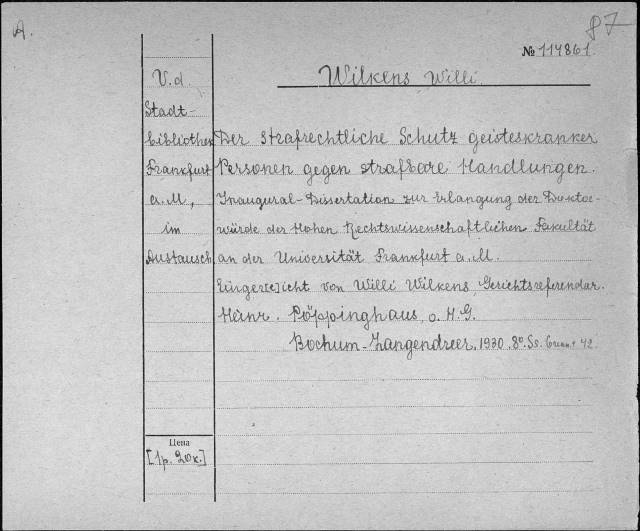 A.
87
№ 117861
Wilkens Willi.
V.d.
Stadt-
bibliothek
Frankfurt
a.M.,
im
Austausch
Der strafrechtliche Schutz geisteskranker
Personen gegen strafbare Handlungen.
Inaugural-Dissertation zur Erlangung der Doktor-
würde der Hohen Rechtswissenschaftlichen Fakultät
an der Universität Frankfurt a.M.
Eingereicht von Willi Wilkens, Gerichtsreferendar.
Heinr. Pöppinghaus, o.H.G.
Bochum-Langendreer. 1930. 8°. Ss. 42
Цена
[1р. 20к.]